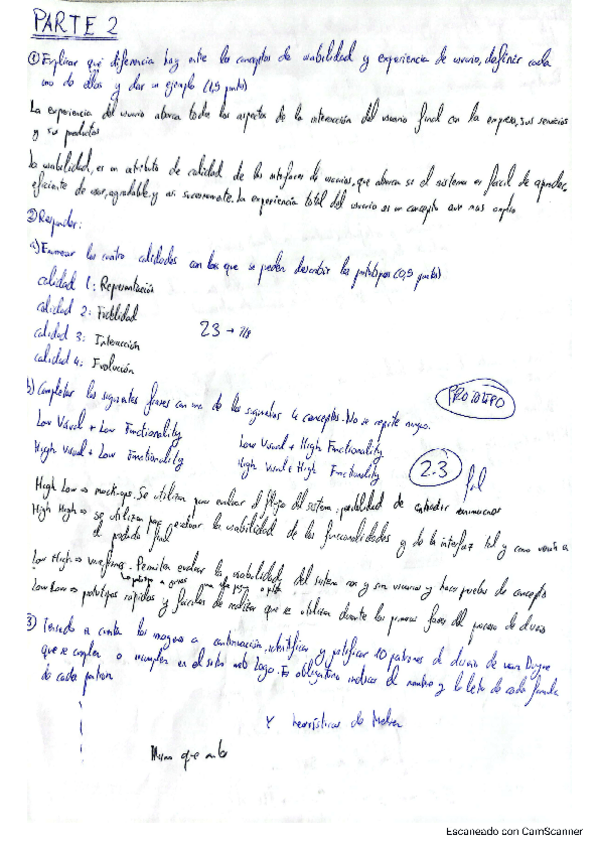 PARTE 2
① Explicar qué diferencia hay entre los conceptos de usabilidad y experiencia de usuario, definir cada
uno de ellos y dar un ejemplo (1,5 puntos)
La experiencia del usuario abarca todos los aspectos de la interacción del usuario final con la empresa, sus servicios
y sus productos
La usabilidad, es un atributo de calidad de las interfaces de usuarios, que abarca si el sistema es fácil de aprender,
eficiente de usar, agradable, y así sucesivamente. La experiencia total del usuario es un concepto aun mas amplio
② Responder:
a) Enumerar las cuatro calidades con las que se pueden describir los prototipos (0,5 puntos)
calidad 1: Representación
calidad 2: Fidelidad
23 →
calidad 3: Interacción
calidad 4: Evolución
b) Completar las siguientes frases con uno de los siguientes 4 conceptos. No se repite ninguno.
PROTOTIPO
Low Visual + Low Functionality
Low Visual + High Functionality
High Visual + Low Functionality
High Visual + High Functionality
2.3
High Low => mockups. Se utilizan para evaluar el flujo del sistema, posibilidad de
High High => se utilizan para evaluar la usabilidad de las funcionalidades y de la interfaz tal y como verán a
el producto final
Low High => wireframes. Permiten evaluar la usabilidad del sistema con y sin usuarios y hacer pruebas de concepto
Low Low => prototipos rápidos y fáciles de realizar que se utilizan durante las primeras fases del proceso de diseño
3) Teniendo en cuenta las imagenes a continuación, identificar y justificar 10 patrones de diseño de van Duyne
que se cumplen o incumplen en el sitio web Lego. Es obligatorio indicar el nombre y la letra de cada familia
de cada patron
Y heurísticas de Nielsen
Mismo que antes
Escaneado con CamScanner